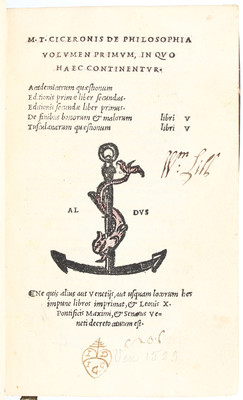 M. T. CICERONIS DE PHILOSOPHIA
VOLVMEN PRIMVM, IN QVO
HAEC CONTINENTVR.
Academicarum quæstionum
Editionis primæ liber secundus.
Editionis secundæ liber primus.
De finibus bonorum & malorum libri V
Tusculanarum quæstionum libri V
Wm.
AL DVS
Ne quis alius aut Venetijs, aut usquam locorum hos
impune libros imprimat, & Leonis X.
Pontificis Maximi, & Senatus Ve-
neti decreto cautum est.